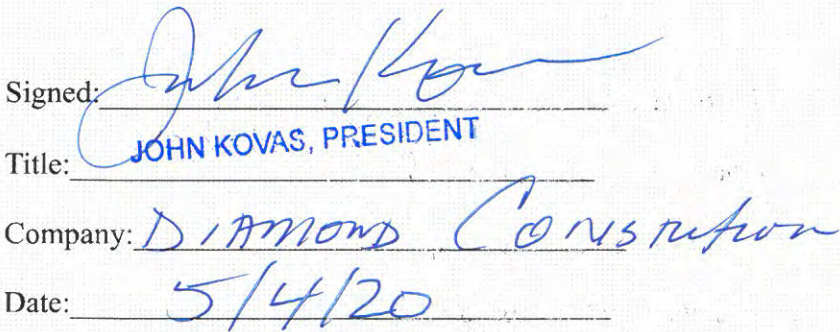 Signed: John Kovas
Title: JOHN KOVAS, PRESIDENT
Company: DIAMOND CONSTRUCTION
Date: 5/4/20